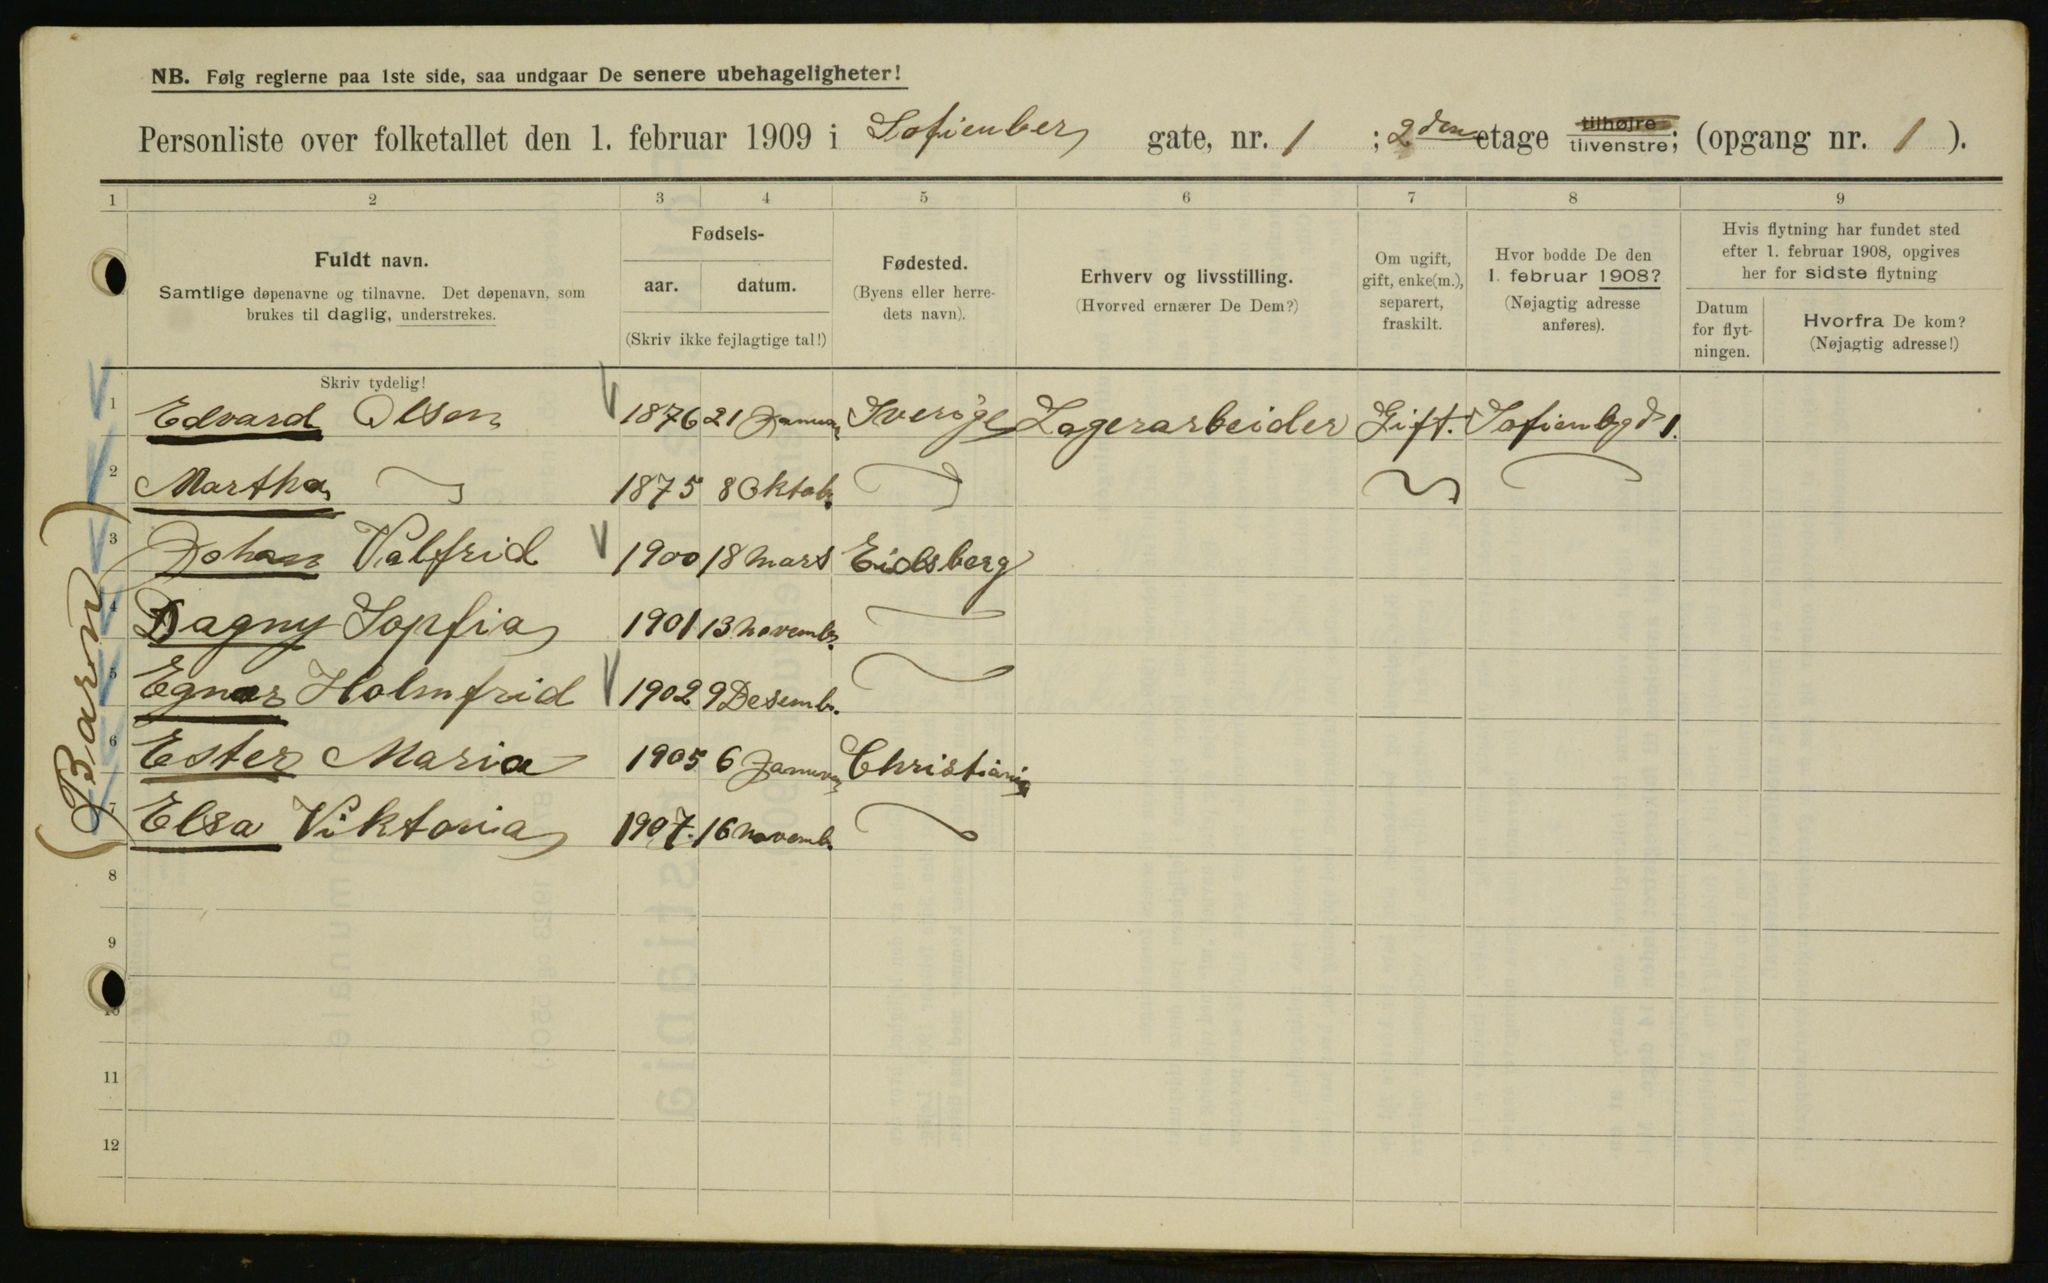 NB. Følg reglerne paa 1ste side, saa undgaar De senere ubehageligheter!
Personliste over folketallet den 1. februar 1909 i Sofienberg gate, nr. 1 ; 2den etage tilhøjre tilvenstre; (opgang nr. 1 ).
1 2 3 4 5 6 7 8 9
Fuldt navn.
Samtlige døpenavne og tilnavne. Det døpenavn, som
brukes til daglig, understrekes.
Fødsels-
aar. datum.
(Skriv ikke fejlagtige tal!)
Fødested.
(Byens eller herre-
dets navn).
Erhverv og livsstilling.
(Hvorved ernærer De Dem?)
Om ugift,
gift, enke(m.),
separert,
fraskilt.
Hvor bodde De den
1. februar 1908?
(Nøjagtig adresse
anføres).
Hvis flytning har fundet sted
efter 1. februar 1908, opgives
her for sidste flytning
Datum
for flyt-
ningen.
Hvorfra De kom?
(Nøjagtig adresse!)
Skriv tydelig!
1 Edvard Olsen 1876 21 Januar Sverige Lagerarbeider Gift. Sofienbgd 1.
2 Martha 1875 8 Oktob.
3 Johan Valfrid 1900 18 Mars Eidsberg
4 Dagny Sopfia 1901 13 Novemb.
5 Egnar Holmfrid 1902 9 Desemb.
6 Ester Maria 1905 6 Januar Christiania
7 Elsa Viktoria 1907. 16 Novemb.
(Barn)
8
9
10
11
12